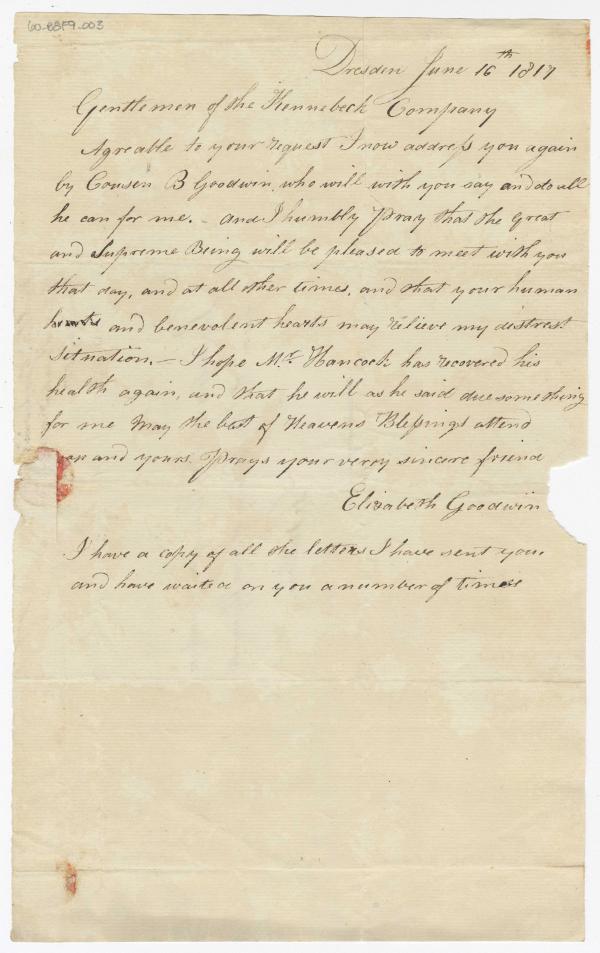 60-BBF9.003
Dresden June 16th 1817
Gentlemen of the Kennebeck Company
Agreable to your request I now address you again
by Cousen B Goodwin, who will with you say and do all
he can for me. - and I humbly Pray that the Great
and Supreme Being will be pleased to meet with you
that day, and at all other times, and that your human
and benevolent hearts may relieve my distrest
situation. - I hope Mr. Hancock has recovered his
health again, and that he will as he said due something
for me May the best of Heavens Blessings attend
and yours. Prays your verry sincere friend
Elizabeth Goodwin
I have a copy of all the letters I have sent you.
and have waited on you a number of times